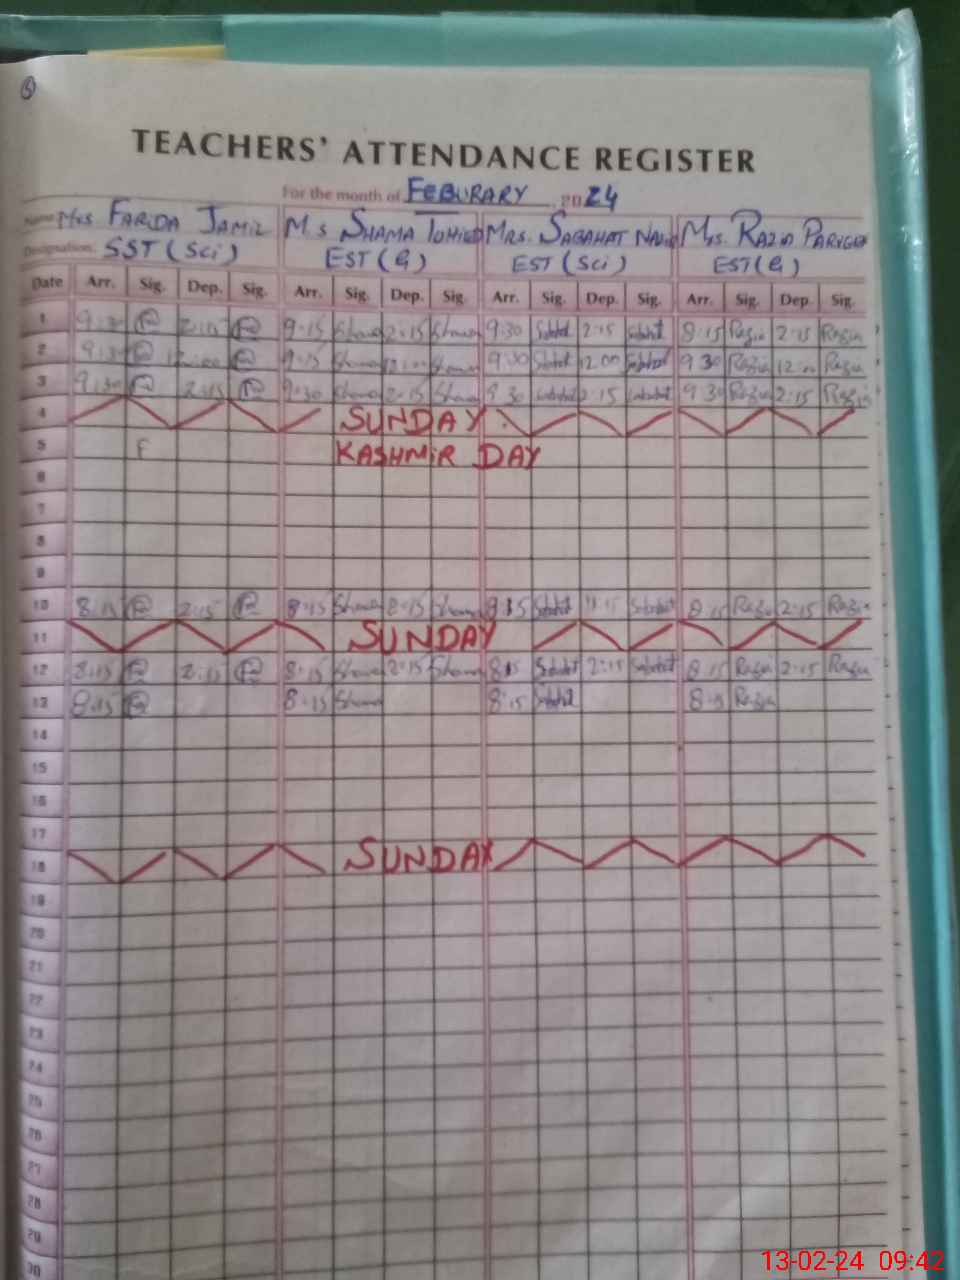 TEACHERS' ATTENDANCE REGISTER
For the month of FEBURARY 2024
Name Mrs. FARIDA JAMIL M.S SHAMA Mrs. SABAHAT Mrs. RAZIA
Designation. SST (Sci) EST (G) EST (Sci) EST (G)
Date Arr. Sig. Dep. Sig. Arr. Sig. Dep. Sig. Arr. Sig. Dep. Sig. Arr. Sig. Dep. Sig.
1 9:30 2:15 9:15 Shama 2:15 Shama 9:30 Sabahat 2:15 Sabahat 8:15 Razia 2:15 Razia
2 9:30 12:00 9:15 Shama 12:00 Shama 9:30 Sabahat 12:00 Sabahat 9:30 Razia 12:00 Razia
3 9:30 2:15 9:30 Shama 2:15 Shama 9:30 Sabahat 2:15 Sabahat 9:30 Razia 2:15 Razia
4 SUNDAY
5 F KASHMIR DAY
6
7
8
9
10 8:15 2:15 8:15 Shama 8:15 Shama 8:15 Sabahat Sabahat 8:15 Razia 2:15 Razia
11 SUNDAY
12 8:15 2:15 8:15 Shama 2:15 Shama 8:15 Sabahat 2:15 Sabahat 8:15 Razia 2:15 Razia
13 8:15 8:15 Shama 8:15 Sabahat 8:15 Razia
14
15
16
17
18 SUNDAY
19
20
21
22
23
24
25
26
27
28
29
30
13-02-24 09:42